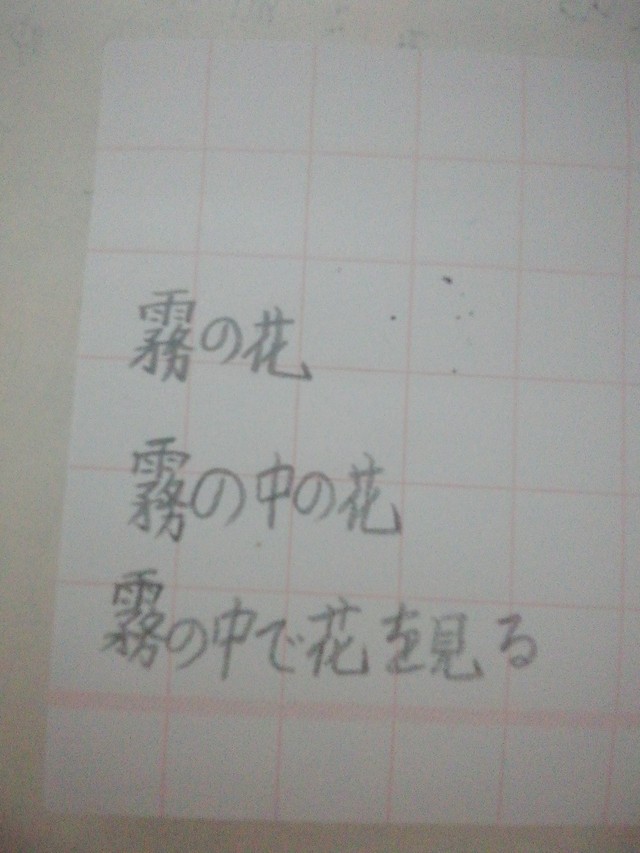 霧の花
霧の中の花
霧の中で花を見る